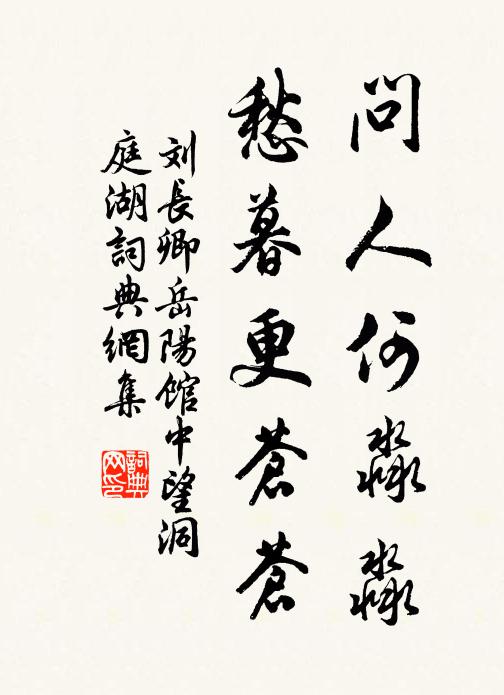 問人何淼淼
愁暮更蒼蒼
刘長卿岳陽館中望洞
庭湖詞典網集
詞典
网印